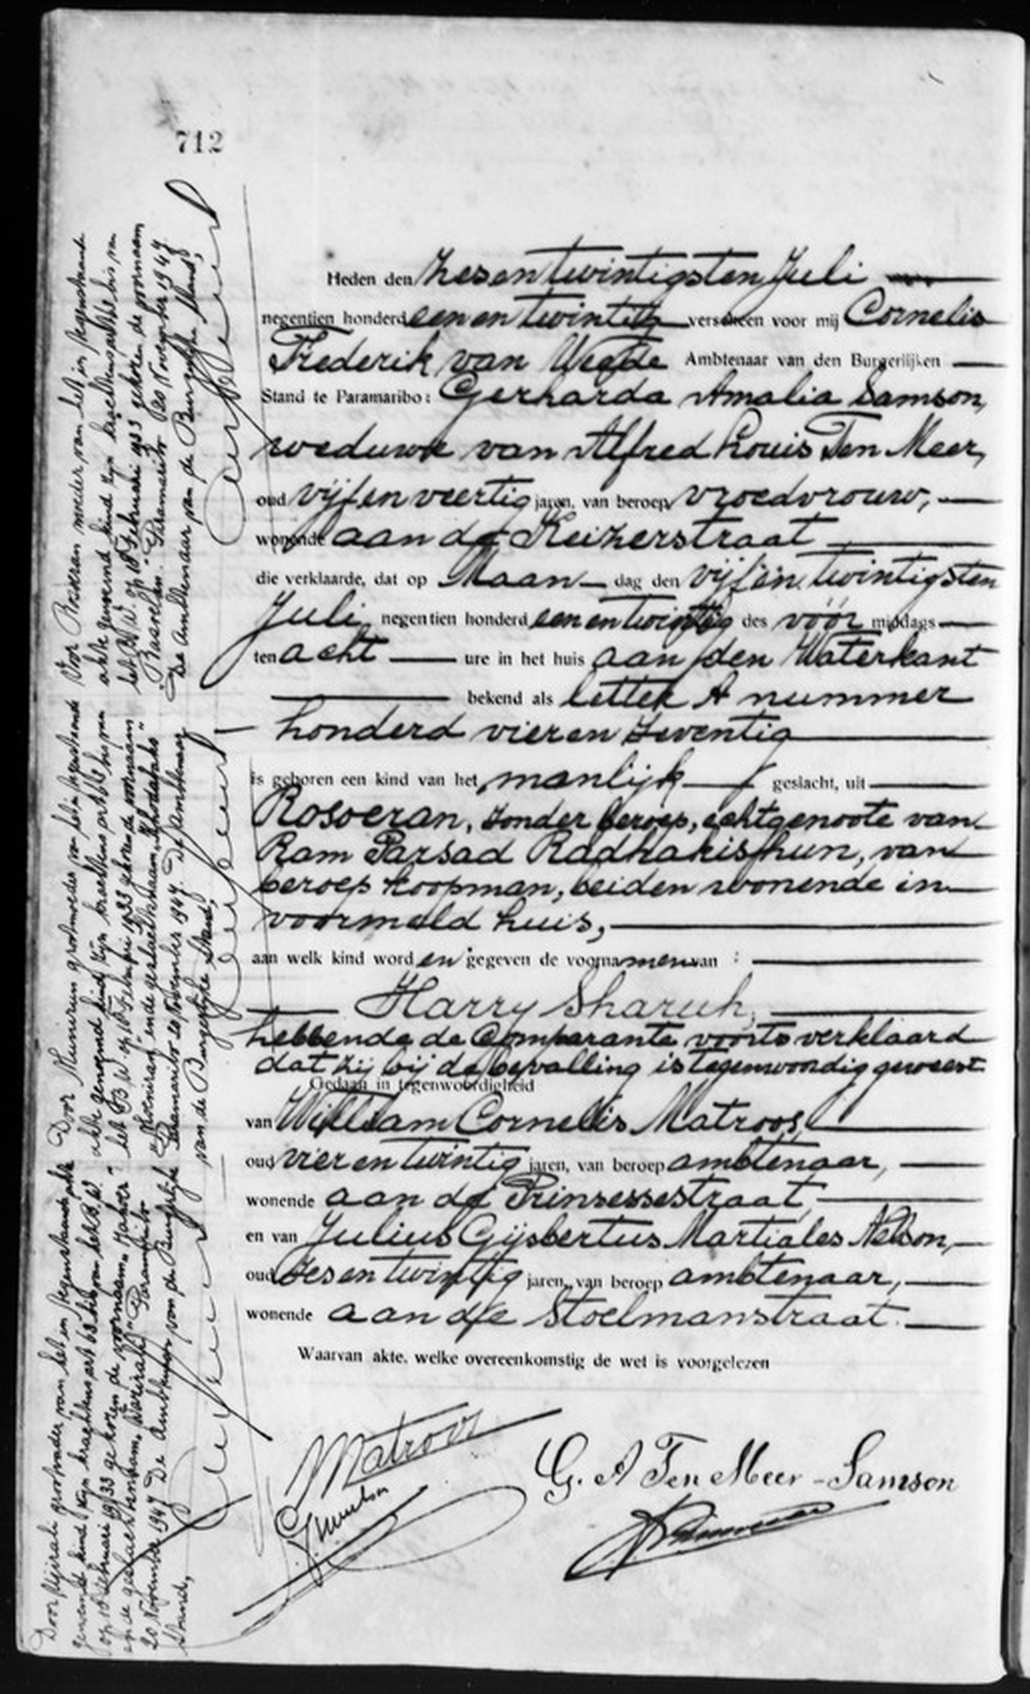 712
Heden den zesentwintigsten Juli
negentien honderd eenentwintig verscheen voor mij Cornelis
Frederik van Ambtenaar van den Burgerlijken
Stand te Paramaribo: Gerharda Amalia Samson,
weduwe van Alfred Louis Ten Meer,
oud vijfenveertig jaren, van beroep vroedvrouw,
wonende aan de Keizerstraat
die verklaarde, dat op Maan dag den vijfentwintigsten
Juli negentien honderd eenentwintig des vóór middags
ten acht ure in het huis aan den Waterkant
bekend als letter A nummer
honderd vierenzeventig
is geboren een kind van het manlijk geslacht, uit
Rosoeran, zonder beroep, echtgenoote van
Ram Parsad Radhakishun, van
beroep koopman, beiden wonende in
voormeld huis,
aan welk kind worden gegeven de voornamen van :
Harry Sharuh,
hebbende de Comparante voorts verklaard
dat zij bij de bevalling is tegenwoordig geweest
Gedaan in tegenwoordigheid
van William Cornelis Matroos,
oud vierentwintig jaren, van beroep ambtenaar,
wonende aan de Prinsessestraat,
en van Julius Gijsbertus Martiales Nelson,
oud zesentwintig jaren, van beroep ambtenaar,
wonende aan de Stoelmanstraat.
Waarvan akte, welke overeenkomstig de wet is voorgelezen
Matroos
G. A Ten Meer - Samson
Door grootvader van het in tegenstaande akte
genoemd kind zijn krachtens art. van het B.W.
op 10 Februari 1933 gekozen de voornaam
en de geslachtsnaam Paramaribo
20 November 1947 De Ambtenaar van de Burgerlijke
Stand,
Door grootmoeder van het in tegenstaande
akte genoemd kind zijn krachtens
het B.W. op 10 Februari 1933 gekozen de voornaam
en de geslachtsnaam
Paramaribo 20 November 1947. De Ambtenaar
van de Burgerlijke Stand,
Door Rosoeran moeder van het in tegenstaande
akte genoemd kind zijn krachtens
het B.W. op 10 Februari 1933 gekozen de voornaam
Paramaribo 20 November 1947
De Ambtenaar van de Burgerlijke Stand,